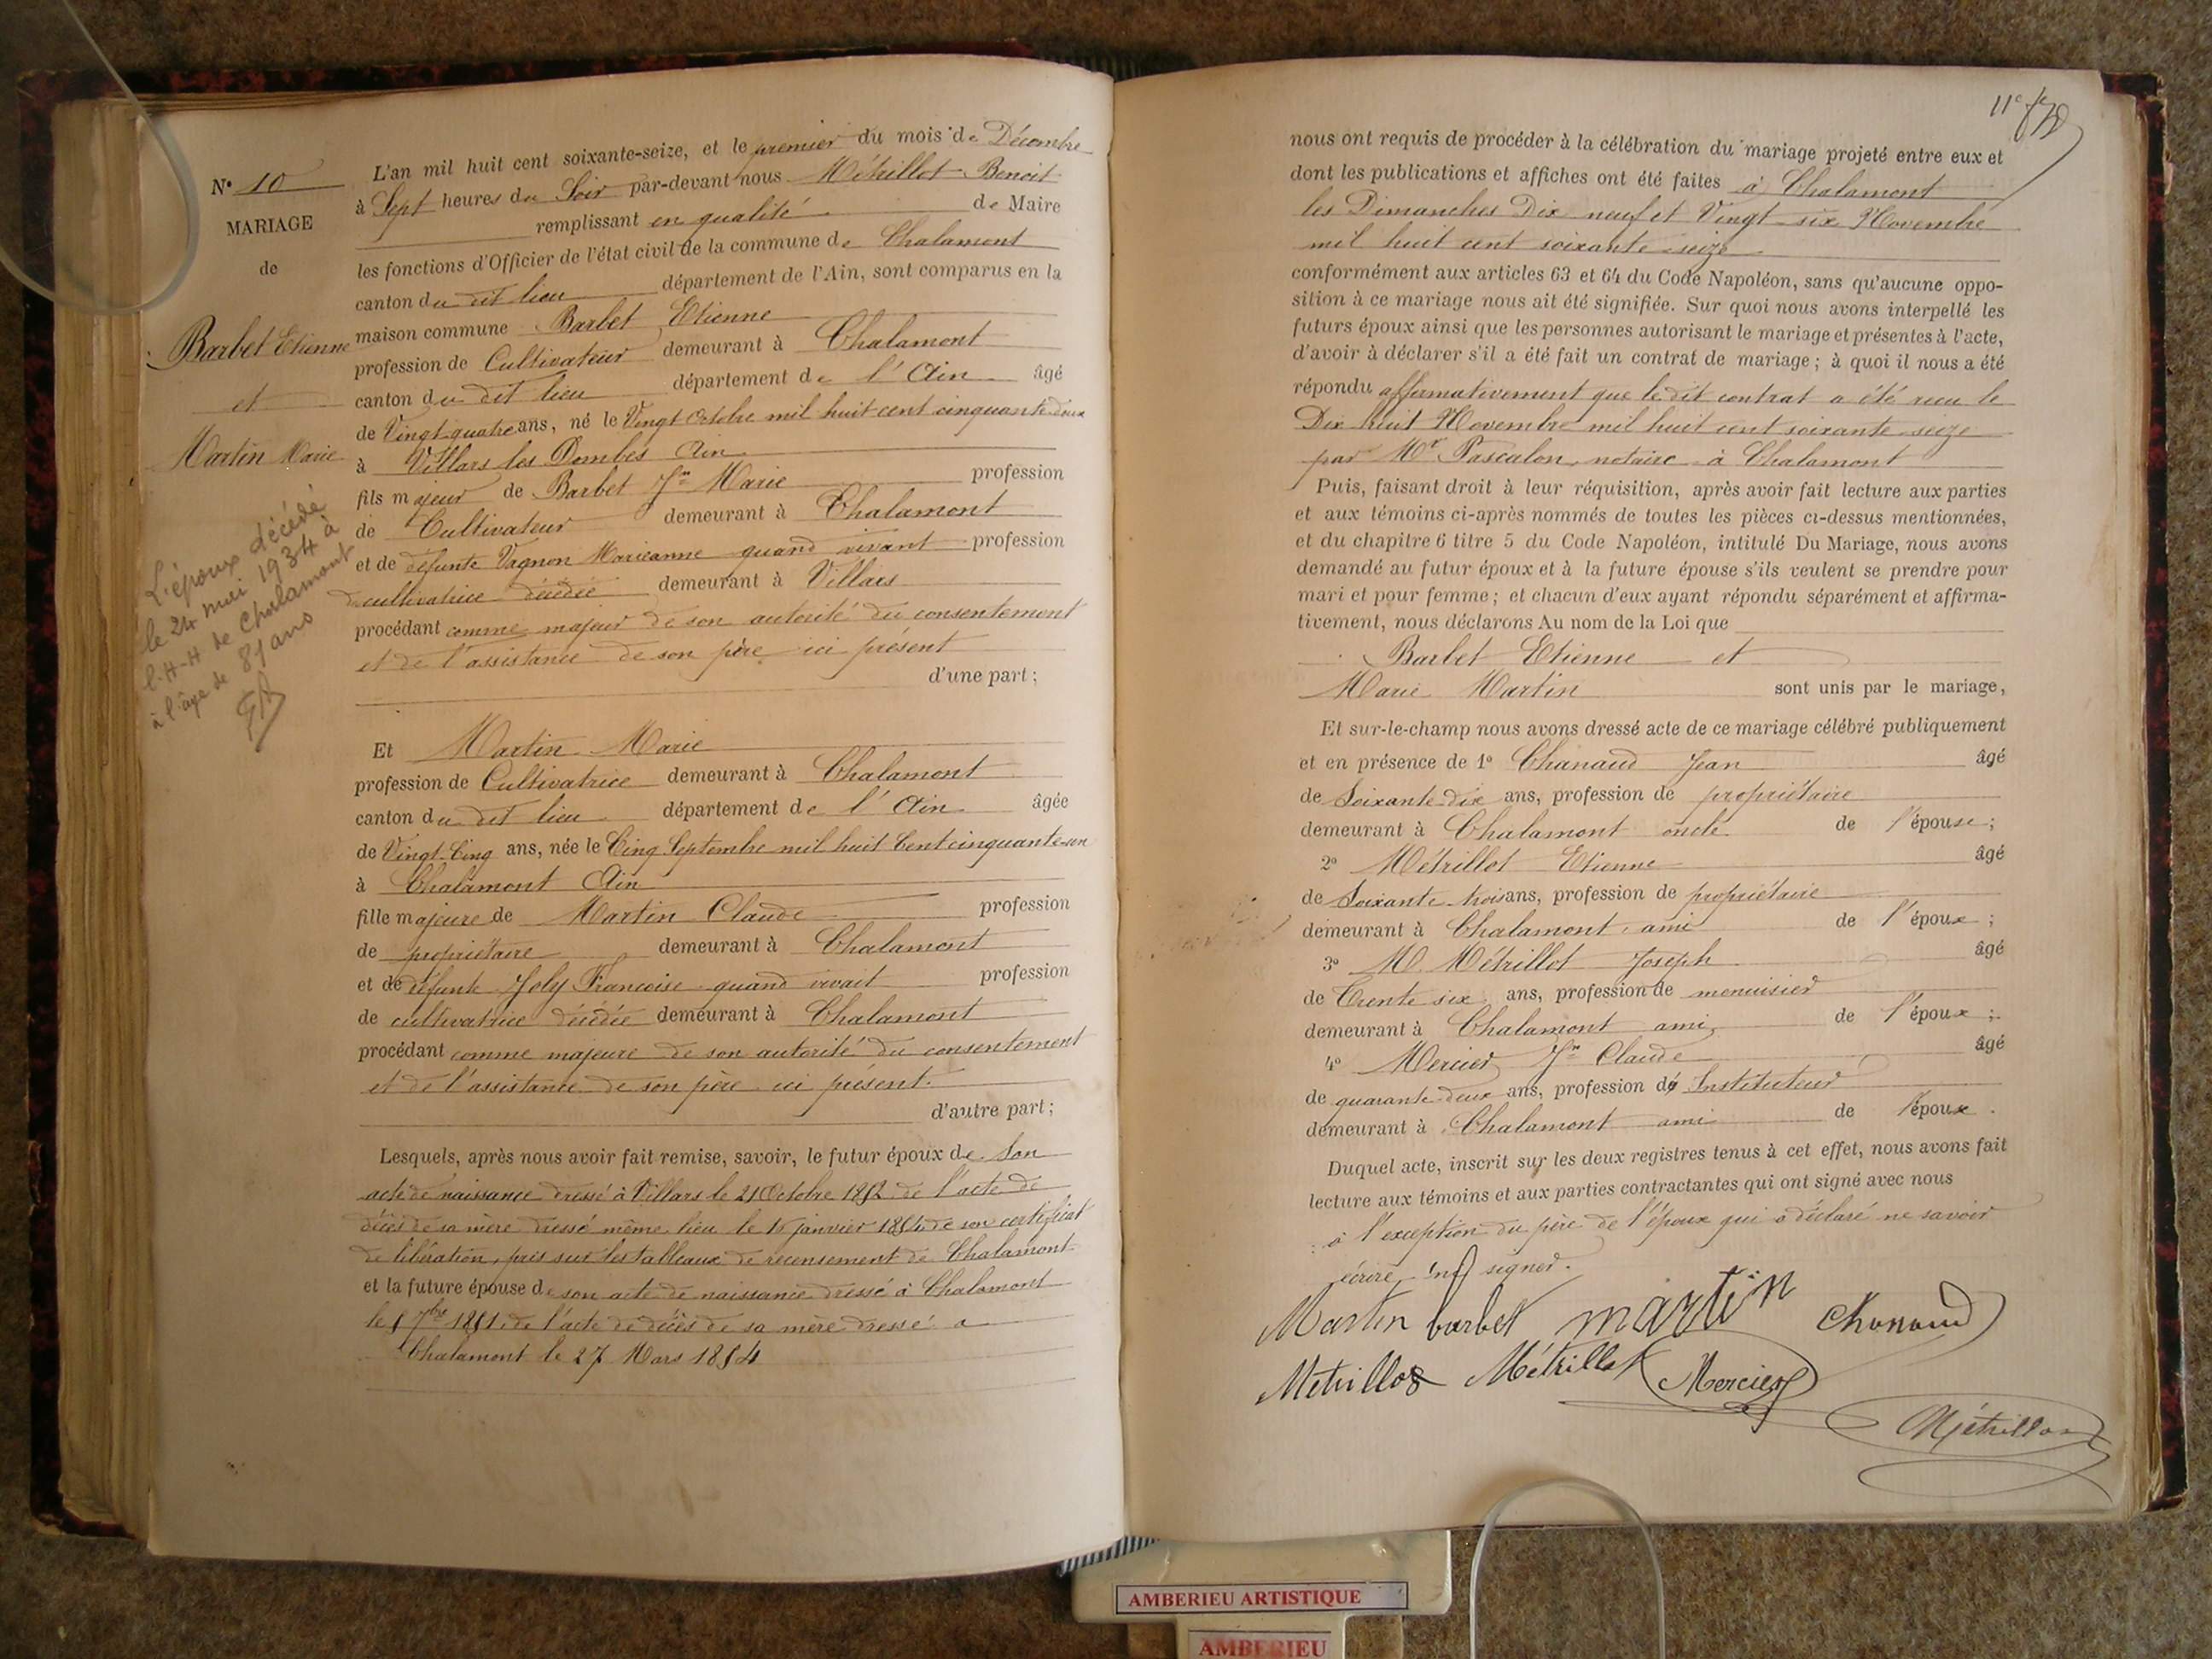 N° 10
MARIAGE
de
Barbet Etienne
et
Martin Marie
L'époux décédé
le 24 mai 1934 à
l'H-H de Chalamont
à l'âge de 81 ans
L'an mil huit cent soixante-seize, et le premier du mois de Décembre
à Sept heures du Soir par-devant nous Métrillot Benoit
remplissant en qualité de Maire
les fonctions d'Officier de l'état civil de la commune de Chalamont
canton du dit lieu département de l'Ain, sont comparus en la
maison commune Barbet Etienne
profession de Cultivateur demeurant à Chalamont
canton du dit lieu département de l'Ain âgé
de Vingt quatre ans, né le Vingt Octobre mil huit cent cinquante deux
à Villars les Dombes Ain
fils majeur de Barbet Jn Marie profession
de Cultivateur demeurant à Chalamont
et de défunte Vagnon Marieanne quand vivant profession
de cultivatrice décédée demeurant à Villars
procédant comme majeur de son autorité du consentement
et de l'assistance de son père ici présent
d'une part ;
Et Martin Marie
profession de Cultivatrice demeurant à Chalamont
canton du dit lieu département de l'Ain âgée
de Vingt Cinq ans, née le Cinq Septembre mil huit Cent cinquante-un
à Chalamont Ain
fille majeure de Martin Claude profession
de propriétaire demeurant à Chalamont
et de défunte Joly Francoise quand vivait profession
de cultivatrice décédée demeurant à Chalamont
procédant comme majeure de son autorité du consentement
et de l'assistance de son père ici présent.
d'autre part ;
Lesquels, après nous avoir fait remise, savoir, le futur époux de Son
acte de naissance dressé à Villars le 21 Octobre 1852 de l'acte de
décès de sa mère dressé même lieu le janvier de son certificat
de libération, pris sur les tableaux de recensement de Chalamont
et la future épouse de son acte de naissance dressé à Chalamont
le 5 7bre 1851, de l'acte de décès de sa mère dressé à
Chalamont le 27 Mars 1854
11e
nous ont requis de procéder à la célébration du mariage projeté entre eux et
dont les publications et affiches ont été faites à Chalamont
les Dimanches Dix neuf et Vingt six Novembre
mil huit cent soixante seize
conformément aux articles 63 et 64 du Code Napoléon, sans qu'aucune oppo-
sition à ce mariage nous ait été signifiée. Sur quoi nous avons interpellé les
futurs époux ainsi que les personnes autorisant le mariage et présentes à l'acte,
d'avoir à déclarer s'il a été fait un contrat de mariage ; à quoi il nous a été
répondu affirmativement que le dit contrat a été reçu le
Dix huit Novembre mil huit cent soixante seize
par Me Pascalon, notaire à Chalamont
Puis, faisant droit à leur réquisition, après avoir fait lecture aux parties
et aux témoins ci-après nommés de toutes les pièces ci-dessus mentionnées,
et du chapitre 6 titre 5 du Code Napoléon, intitulé Du Mariage, nous avons
demandé au futur époux et à la future épouse s'ils veulent se prendre pour
mari et pour femme ; et chacun d'eux ayant répondu séparément et affirma-
tivement, nous déclarons Au nom de la Loi que
Barbet Etienne et
Marie Martin sont unis par le mariage,
Et sur-le-champ nous avons dressé acte de ce mariage célébré publiquement
et en présence de 1° Chanaud Jean âgé
de Soixante-dix ans, profession de propriétaire
demeurant à Chalamont oncle de l'épouse ;
2° Métrillot Etienne âgé
de Soixante trois ans, profession de propriétaire
demeurant à Chalamont, ami de l'époux ;
3° M. Métrillot Joseph âgé
de Trente six ans, profession de menuisier
demeurant à Chalamont ami de l'époux ;
4° Mercier Jn Claude âgé
de quarante deux ans, profession de Instituteur
demeurant à Chalamont ami de l'époux.
Duquel acte, inscrit sur les deux registres tenus à cet effet, nous avons fait
lecture aux témoins et aux parties contractantes qui ont signé avec nous
à l'exception du père de l'époux qui a déclaré ne savoir
écrire ni signer.
Martin barbet martin Chanaud
Métrillot Métrillot Mercier
Métrillot
AMBERIEU ARTISTIQUE
AMBERIEU